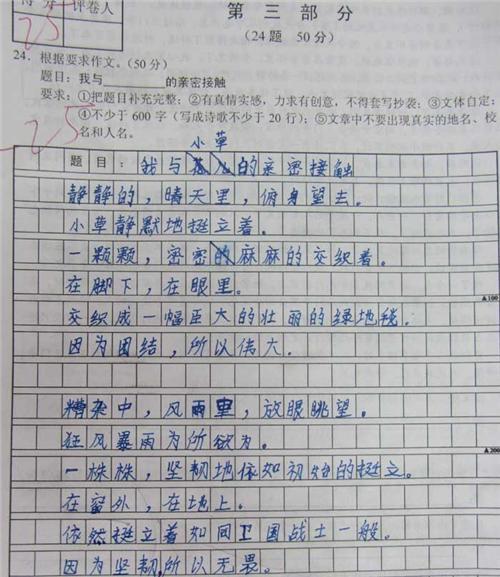 得分 评卷人
25
第三部分
(24题 50分)
24. 根据要求作文。(50分)
题目：我与________的亲密接触
要求：①把题目补充完整；②有真情实感，力求有创意，不得套写抄袭；③文体自定；
④不少于 600 字（写成诗歌不少于 20 行）；⑤文章中不要出现真实的地名、校
名和人名。
25
小草
题目：我与的亲密接触
静静的，晴天里，俯身望去。
小草静默地挺立着。
一颗颗，密密麻麻的交织着。
在脚下，在眼里。
▲100
交织成一幅巨大的壮丽的绿地毯。
因为团结，所以伟大。
糟杂中，风雨里，放眼眺望。
狂风暴雨为所欲为。
▲200
一株株，坚韧地依如初始的挺立。
在窗外，在地上。
依然挺立着如同卫国战士一般。
因为坚韧,所以无畏。